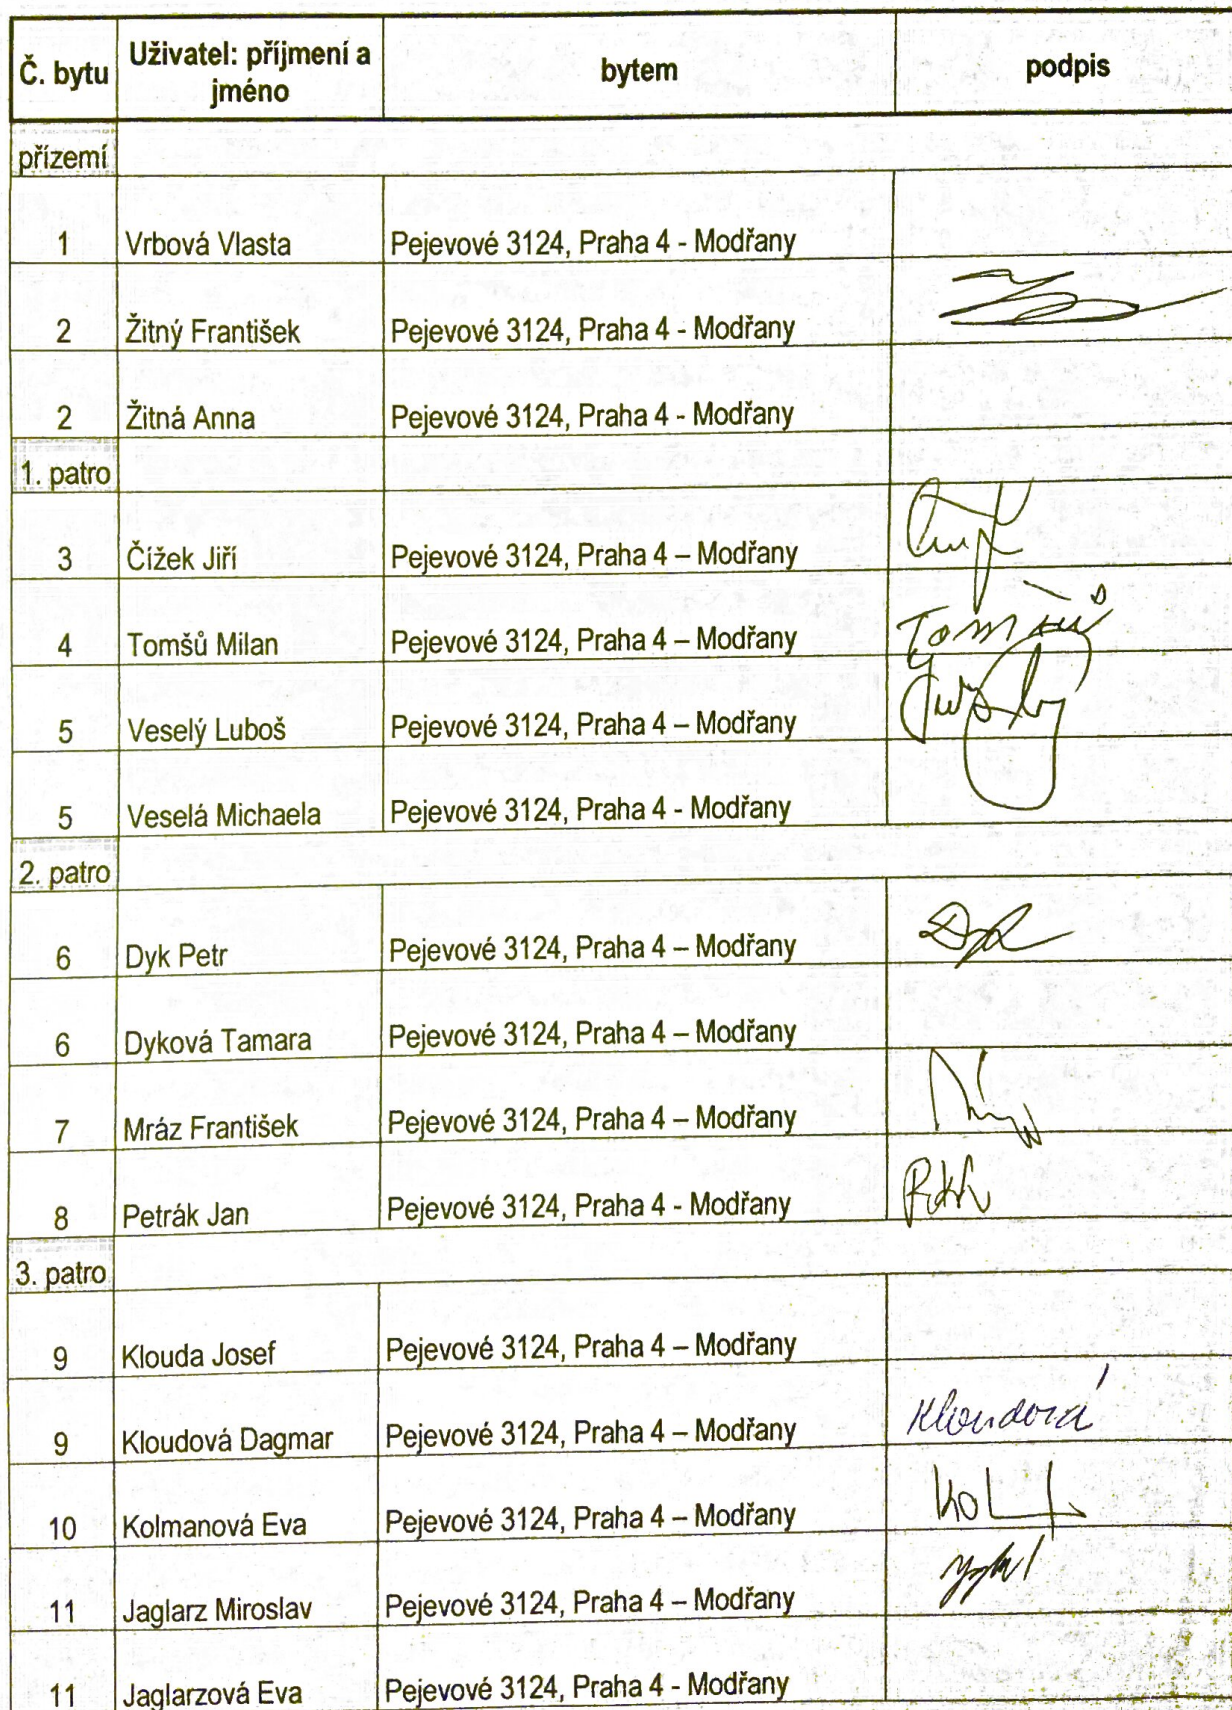 Č. bytu Uživatel: příjmení a jméno bytem podpis
přízemí
1 Vrbová Vlasta Pejevové 3124, Praha 4 - Modřany
2 Žitný František Pejevové 3124, Praha 4 - Modřany
2 Žitná Anna Pejevové 3124, Praha 4 - Modřany
1. patro
3 Čížek Jiří Pejevové 3124, Praha 4 – Modřany
4 Tomšů Milan Pejevové 3124, Praha 4 – Modřany Tomšů
5 Veselý Luboš Pejevové 3124, Praha 4 – Modřany
5 Veselá Michaela Pejevové 3124, Praha 4 - Modřany
2. patro
6 Dyk Petr Pejevové 3124, Praha 4 – Modřany Dyk
6 Dyková Tamara Pejevové 3124, Praha 4 – Modřany
7 Mráz František Pejevové 3124, Praha 4 – Modřany
8 Petrák Jan Pejevové 3124, Praha 4 - Modřany
3. patro
9 Klouda Josef Pejevové 3124, Praha 4 – Modřany
9 Kloudová Dagmar Pejevové 3124, Praha 4 – Modřany Kloudová
10 Kolmanová Eva Pejevové 3124, Praha 4 – Modřany
11 Jaglarz Miroslav Pejevové 3124, Praha 4 – Modřany
11 Jaglarzová Eva Pejevové 3124, Praha 4 - Modřany